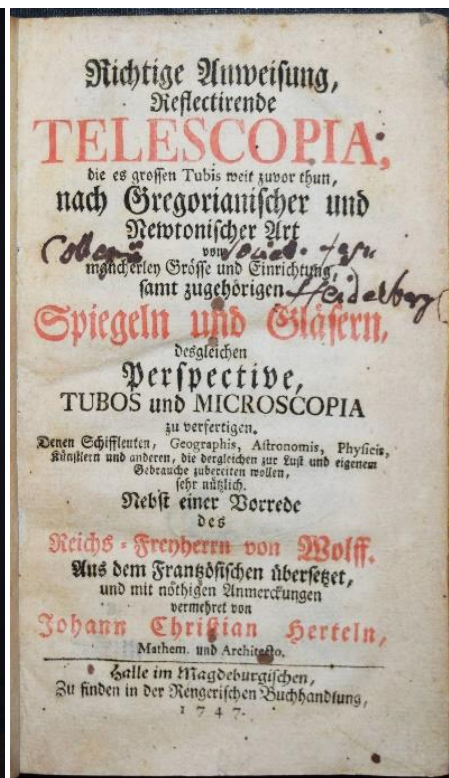 Richtige Anweisung,
Reflectirende
TELESCOPIA,
die es grossen Tubis weit zuvor thun,
nach Gregorianischer und
Newtonischer Art
von
mancherley Grösse und Einrichtung,
samt zugehörigen
Heidelberg
Spiegeln und Gläsern,
desgleichen
Perspective,
TUBOS und MICROSCOPIA
zu verfertigen.
Denen Schiffleuten, Geographis, Astronomis, Physicis,
Künstlern und anderen, die dergleichen zur Lust und eigenem
Gebrauche zubereiten wollen,
sehr nützlich.
Nebst einer Vorrede
des
Reichs-Freyherrn von Wolff.
Aus dem Frantzösischen übersetzet,
und mit nöthigen Anmerckungen
vermehret von
Johann Christian Herteln,
Mathem. und Architecto.
Halle im Magdeburgischen,
Zu finden in der Rengerischen Buchhandlung,
1747.